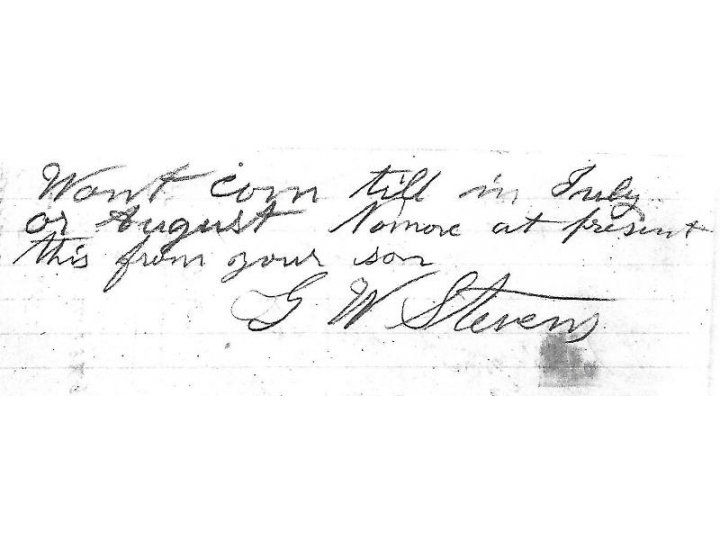 Wont com till in July
or August Nomore at present
this from your son
G W Stevens